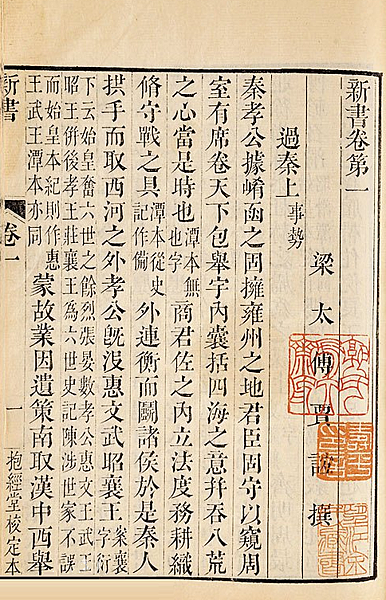 新書卷第一
梁太傅賈誼撰
過秦上事勢
秦孝公據崤函之固擁雍州之地君臣固守以窺周
室有席卷天下包舉宇內囊括四海之意并吞八荒
之心當是時也潭本無也字商君佐之內立法度務耕織
脩守戰之具潭本從史記作備外連衡而鬭諸侯於是秦人
拱手而取西河之外孝公旣沒惠文武昭襄王案襄字衍
下云始皇奮六世之餘烈張晏數孝公惠文王武王
昭王併後孝王莊襄王為六世史記陳涉世家不誤
而始皇本紀則作惠王武王潭本亦同蒙故業因遺策南取漢中西舉
新書 卷一 一 抱經堂校定本